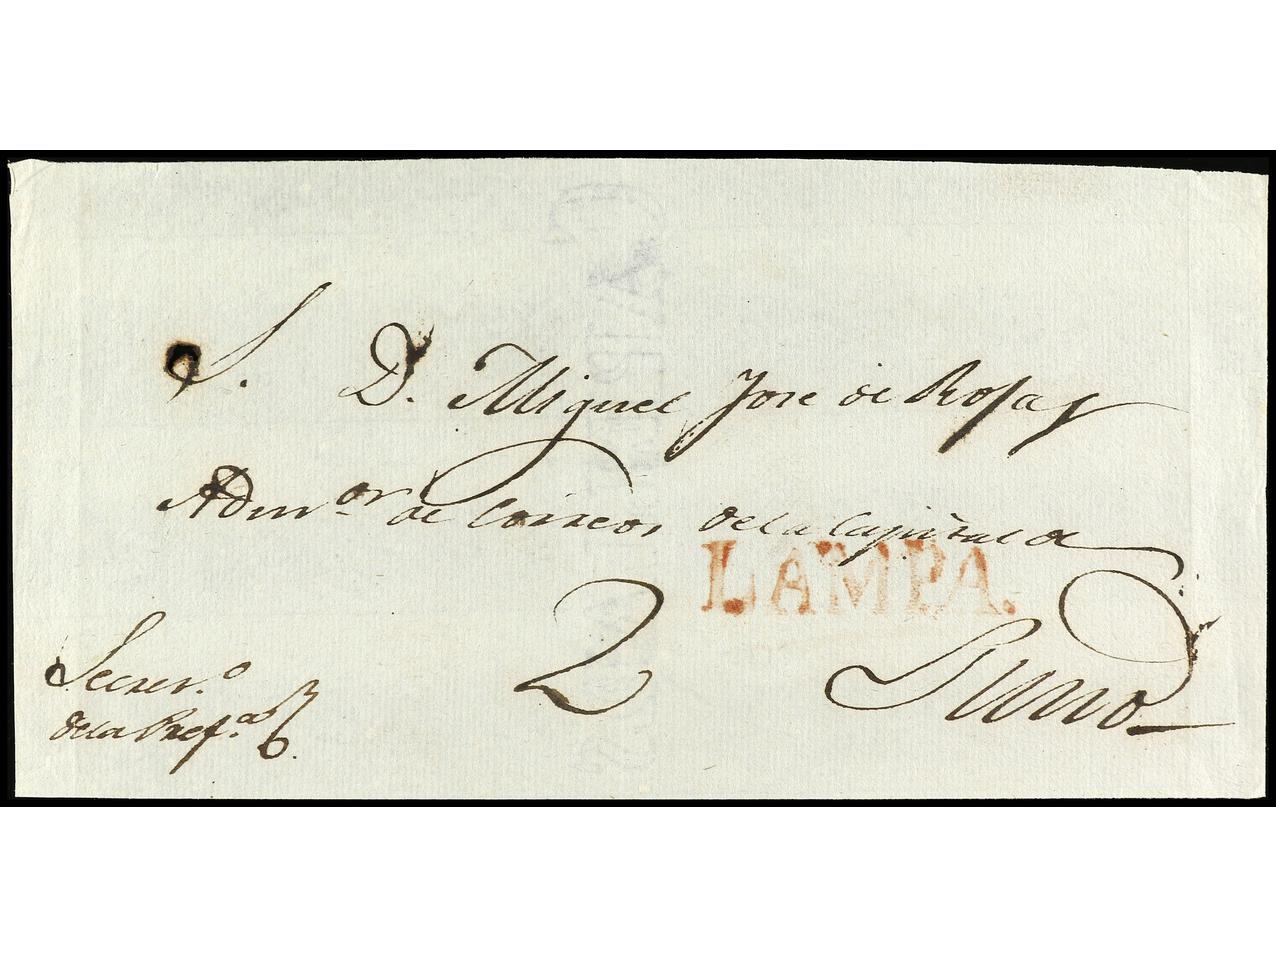 S. D. Miguel Jose de Rosas
Admor. de Correos de la Capital de
LAMPA.
2 Puno
Secret.o
de la Pref.a